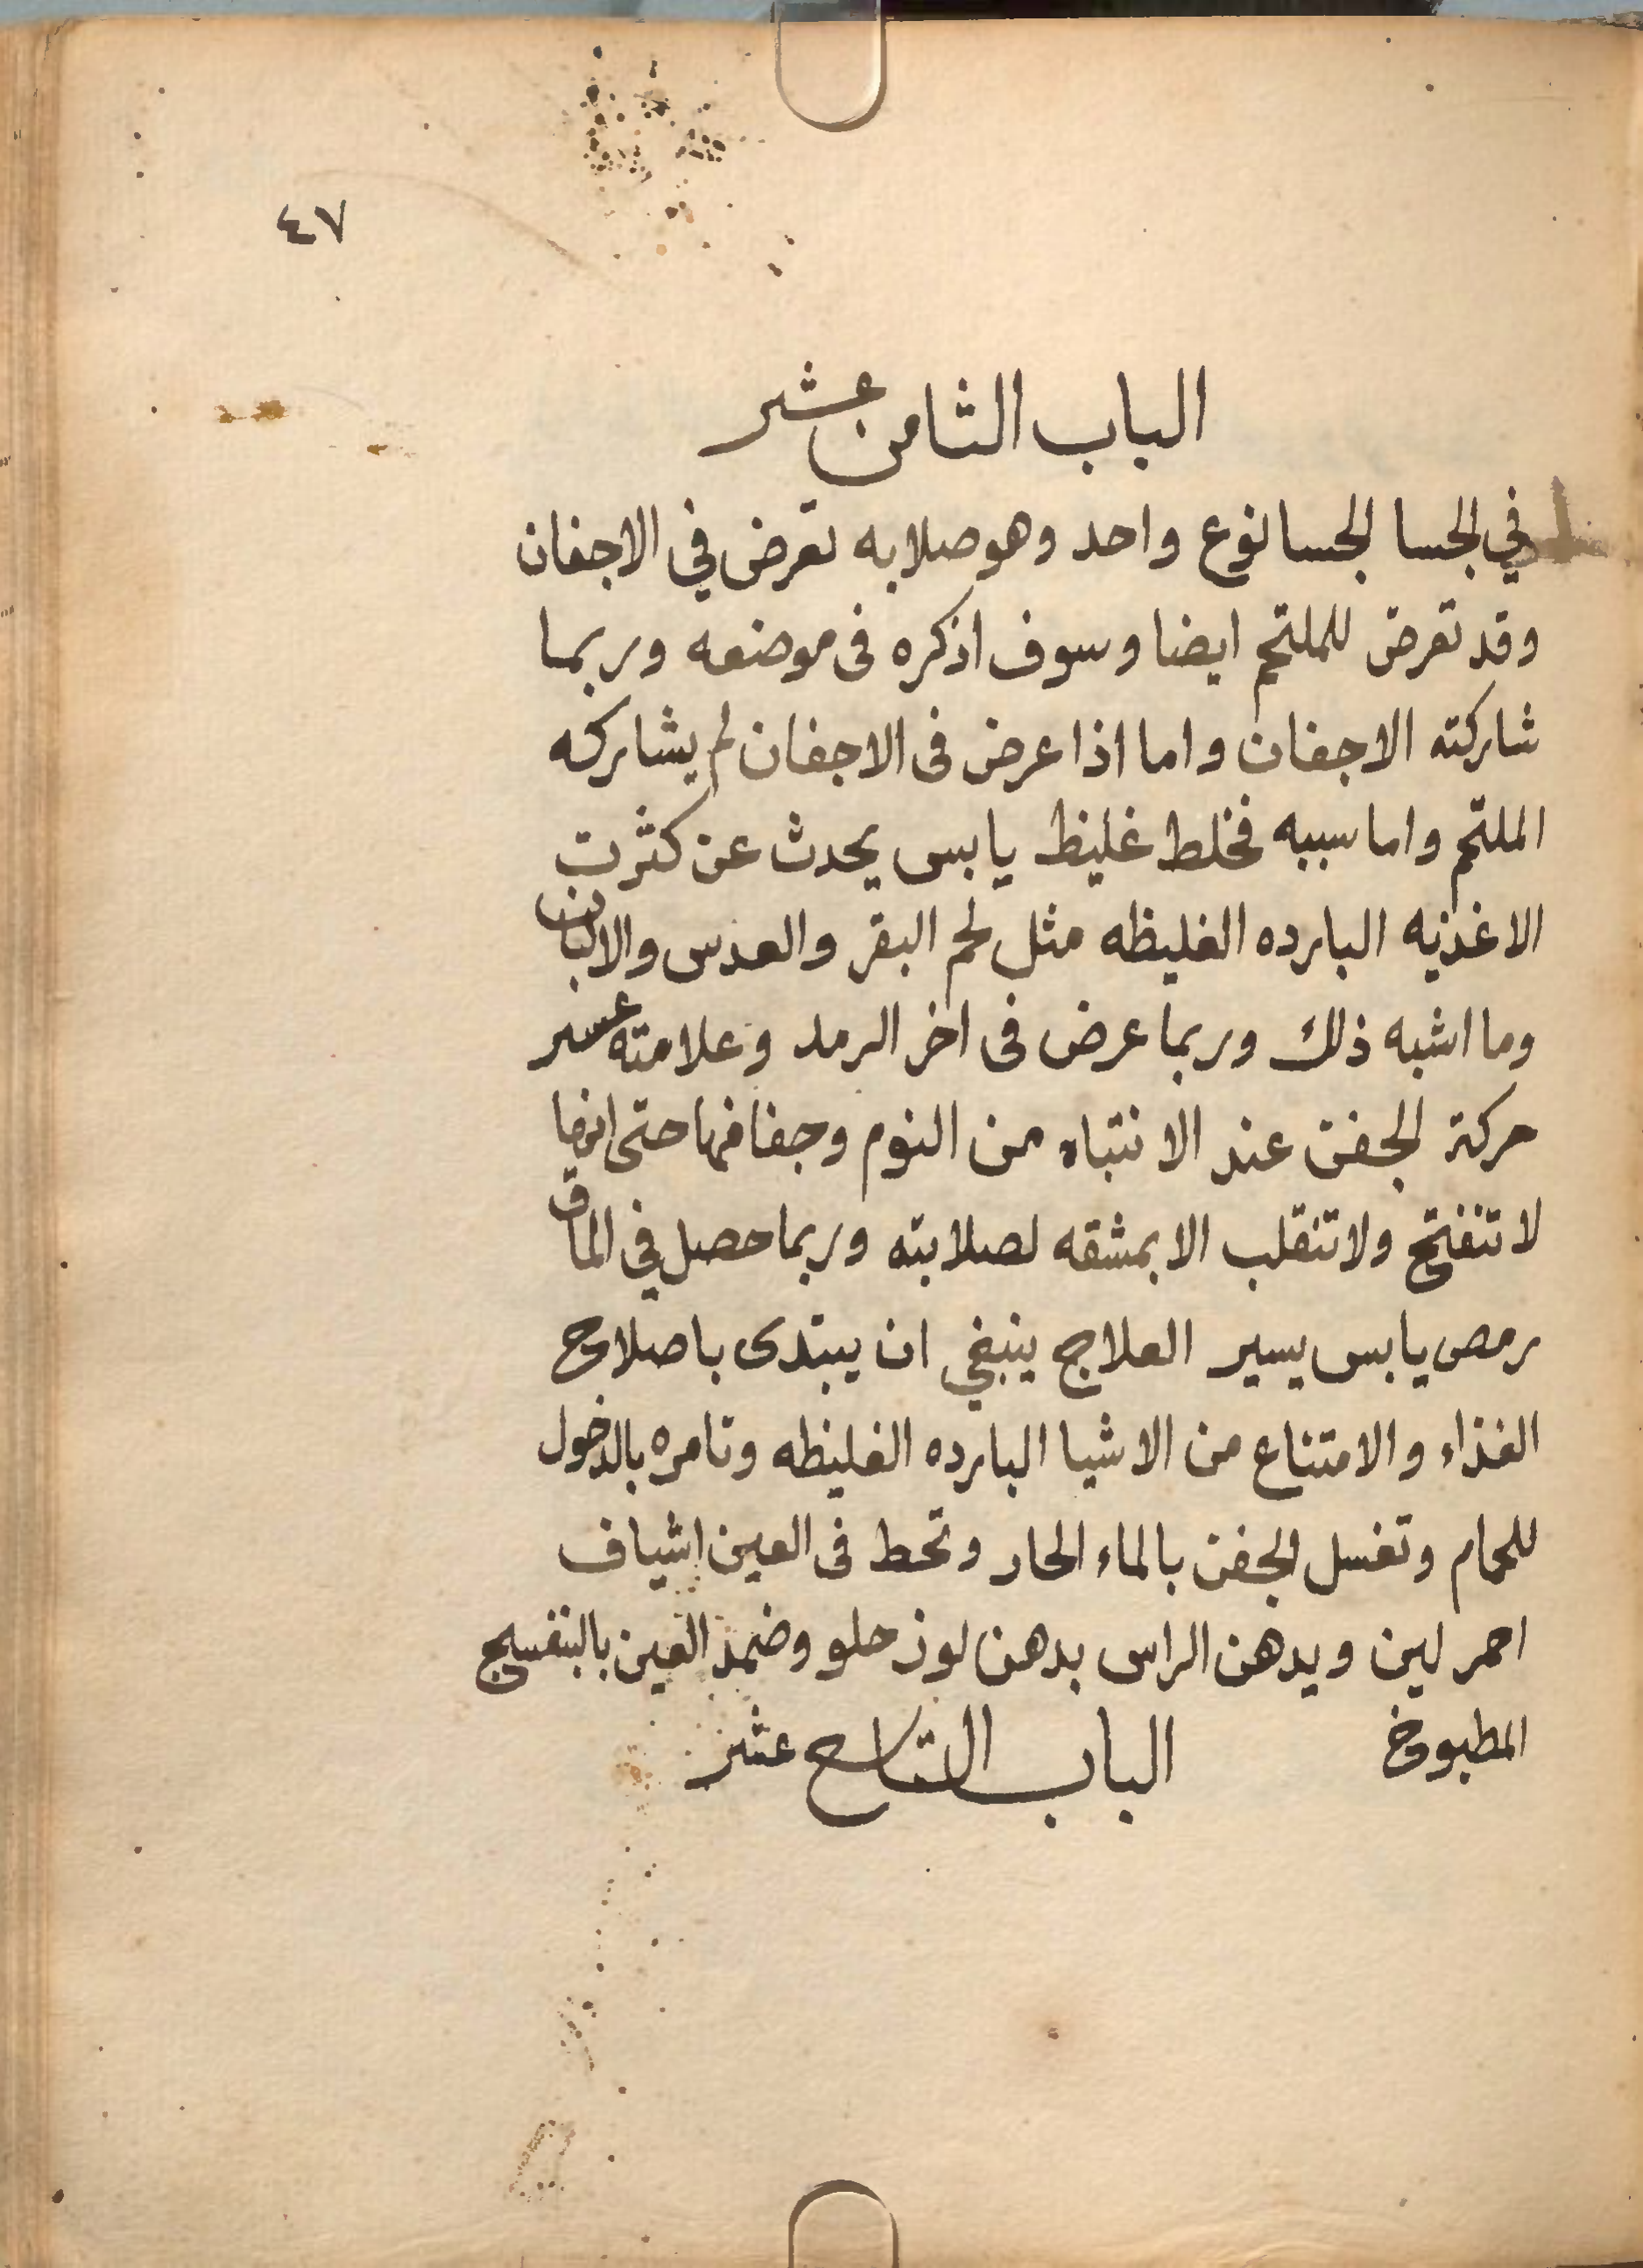 ٤٧
الباب الثامن عشر
في الجسا الجسا نوع واحد وهو صلابه تعرض في الاجفان
وقد تعرض للملتحم ايضا وسوف اذكره فى موضعه وربما
شاركته الاجفان واما اذا عرض فى الاجفان لم يشاركه
الملتحم واما سببه فخلط غليظ يابس يحدث عن كثرت
الاغذيه البارده الغليظه مثل لحم البقر والعدس والالبان
وما اشبه ذلك وربما عرض فى اخر الرمد وعلامته عسر
حركة الجفن عند الانتباه من النوم وجفافها حتى انها
لا تنفتح ولا تنقلب الا بمشقه لصلابته وربما حصل في الماق
رمص يابس يسير العلاج ينبغي ان يبتدى باصلاح
الغذاء والامتناع من الاشيا البارده الغليظه وتامره بالدخول
للحمام وتغسل الجفن بالماء الحار وتحط فى العين اشياف
احمر لين ويدهن الراس بدهن لوز حلو وضمد العين بالبنفسج
المطبوخ الباب التاسع عشر